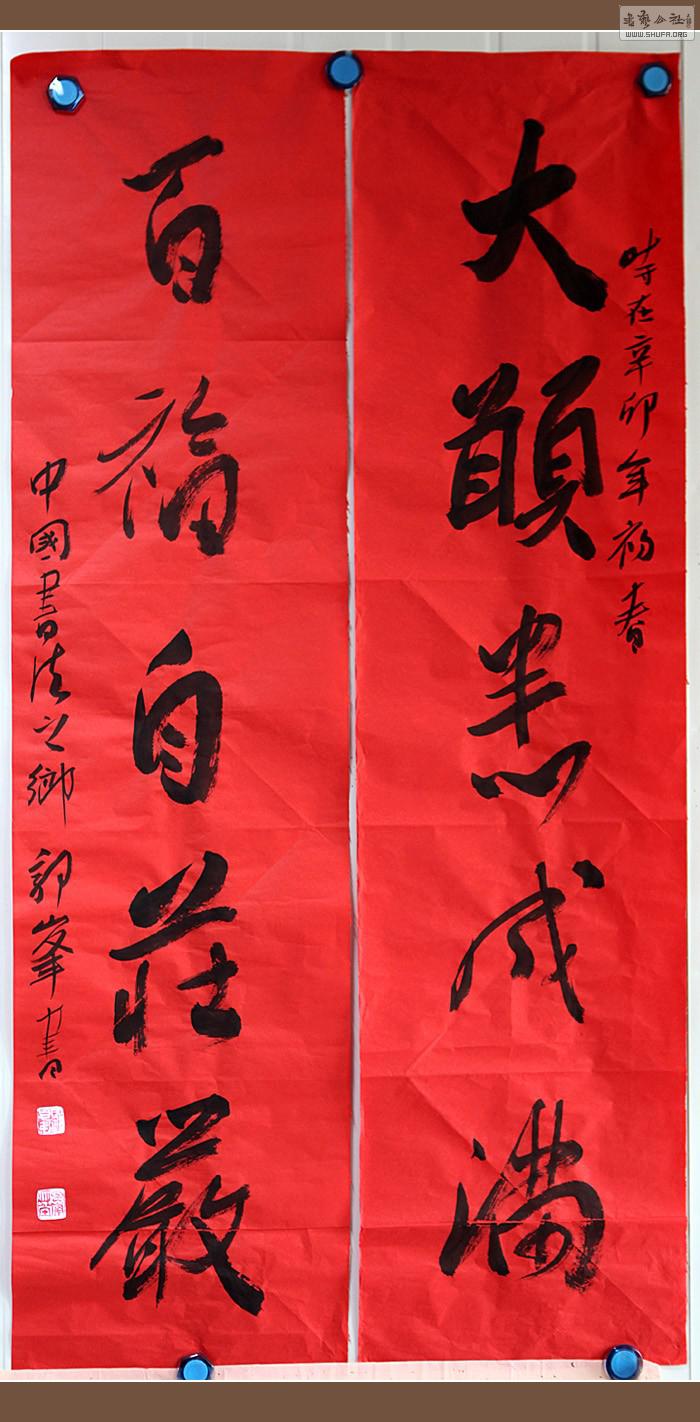 時在辛卯年初春
大願悉成滿
百福自莊嚴
中國書法之鄉 郭峯書
書藝公社
WWW.SHUFA.ORG